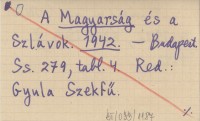 A Magyarság és a
Szlávok. 1942. – Budapest.
Ss. 279, tabl. 4. Red.:
Gyula Szekfű.